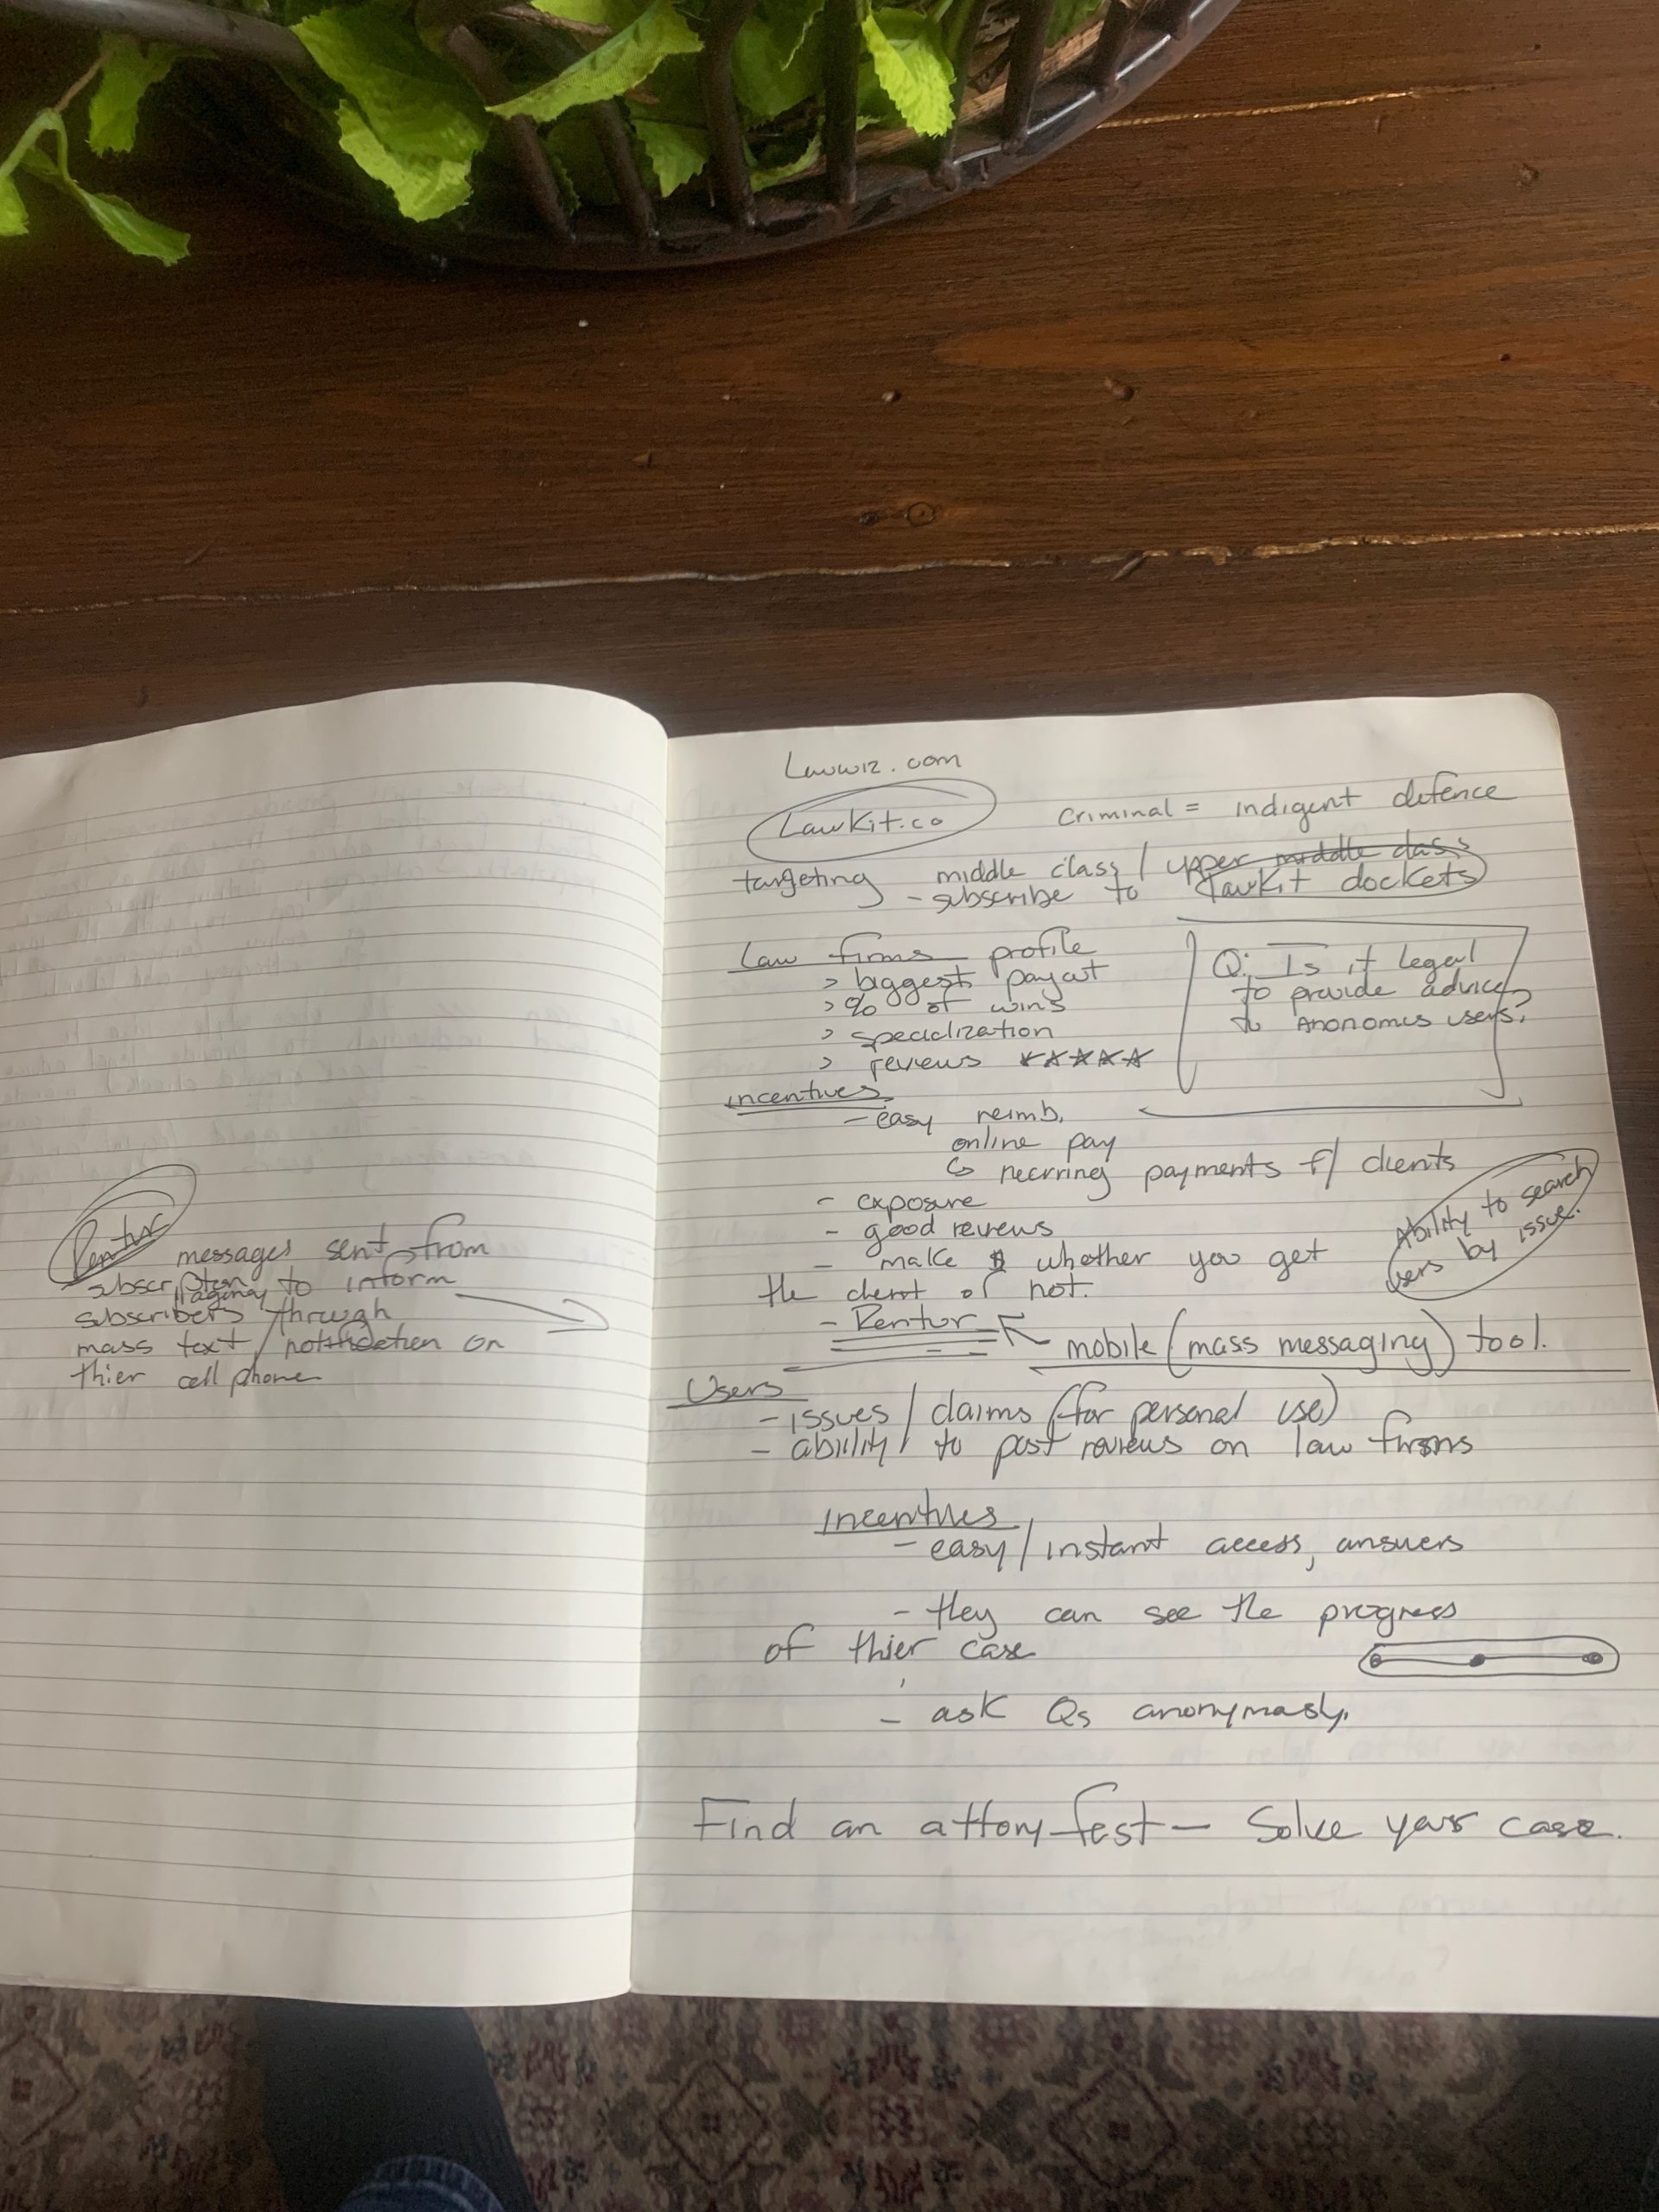 messages sent from
subscription to inform
subscribers through
mass text / notification on
thier cell phone
Lawwiz.com
LawKit.co
criminal = indigent defence
targeting middle class / upper middle class
- subscribe to LawKit dockets
Law firms profile
> biggest payout
> % of wins
> specialization
> reviews ☆☆☆☆☆
Q: Is it legal
to provide advice
to Anonomus users?
incentives
- easy reimb.
online pay
↳ recrring payments f/ clients
- exposure
- good reviews
- make $ whether you get
the client or not.
Ability to search
users by issue.
- Rentur
mobile (mass messaging) tool.
Users
- issues / claims (for personal use)
- ability to post reviews on law firms
incentives
- easy / instant access, answers
- they can see the progress
of thier case
- ask Qs anonymasly.
Find an attony fast - Solve your case.